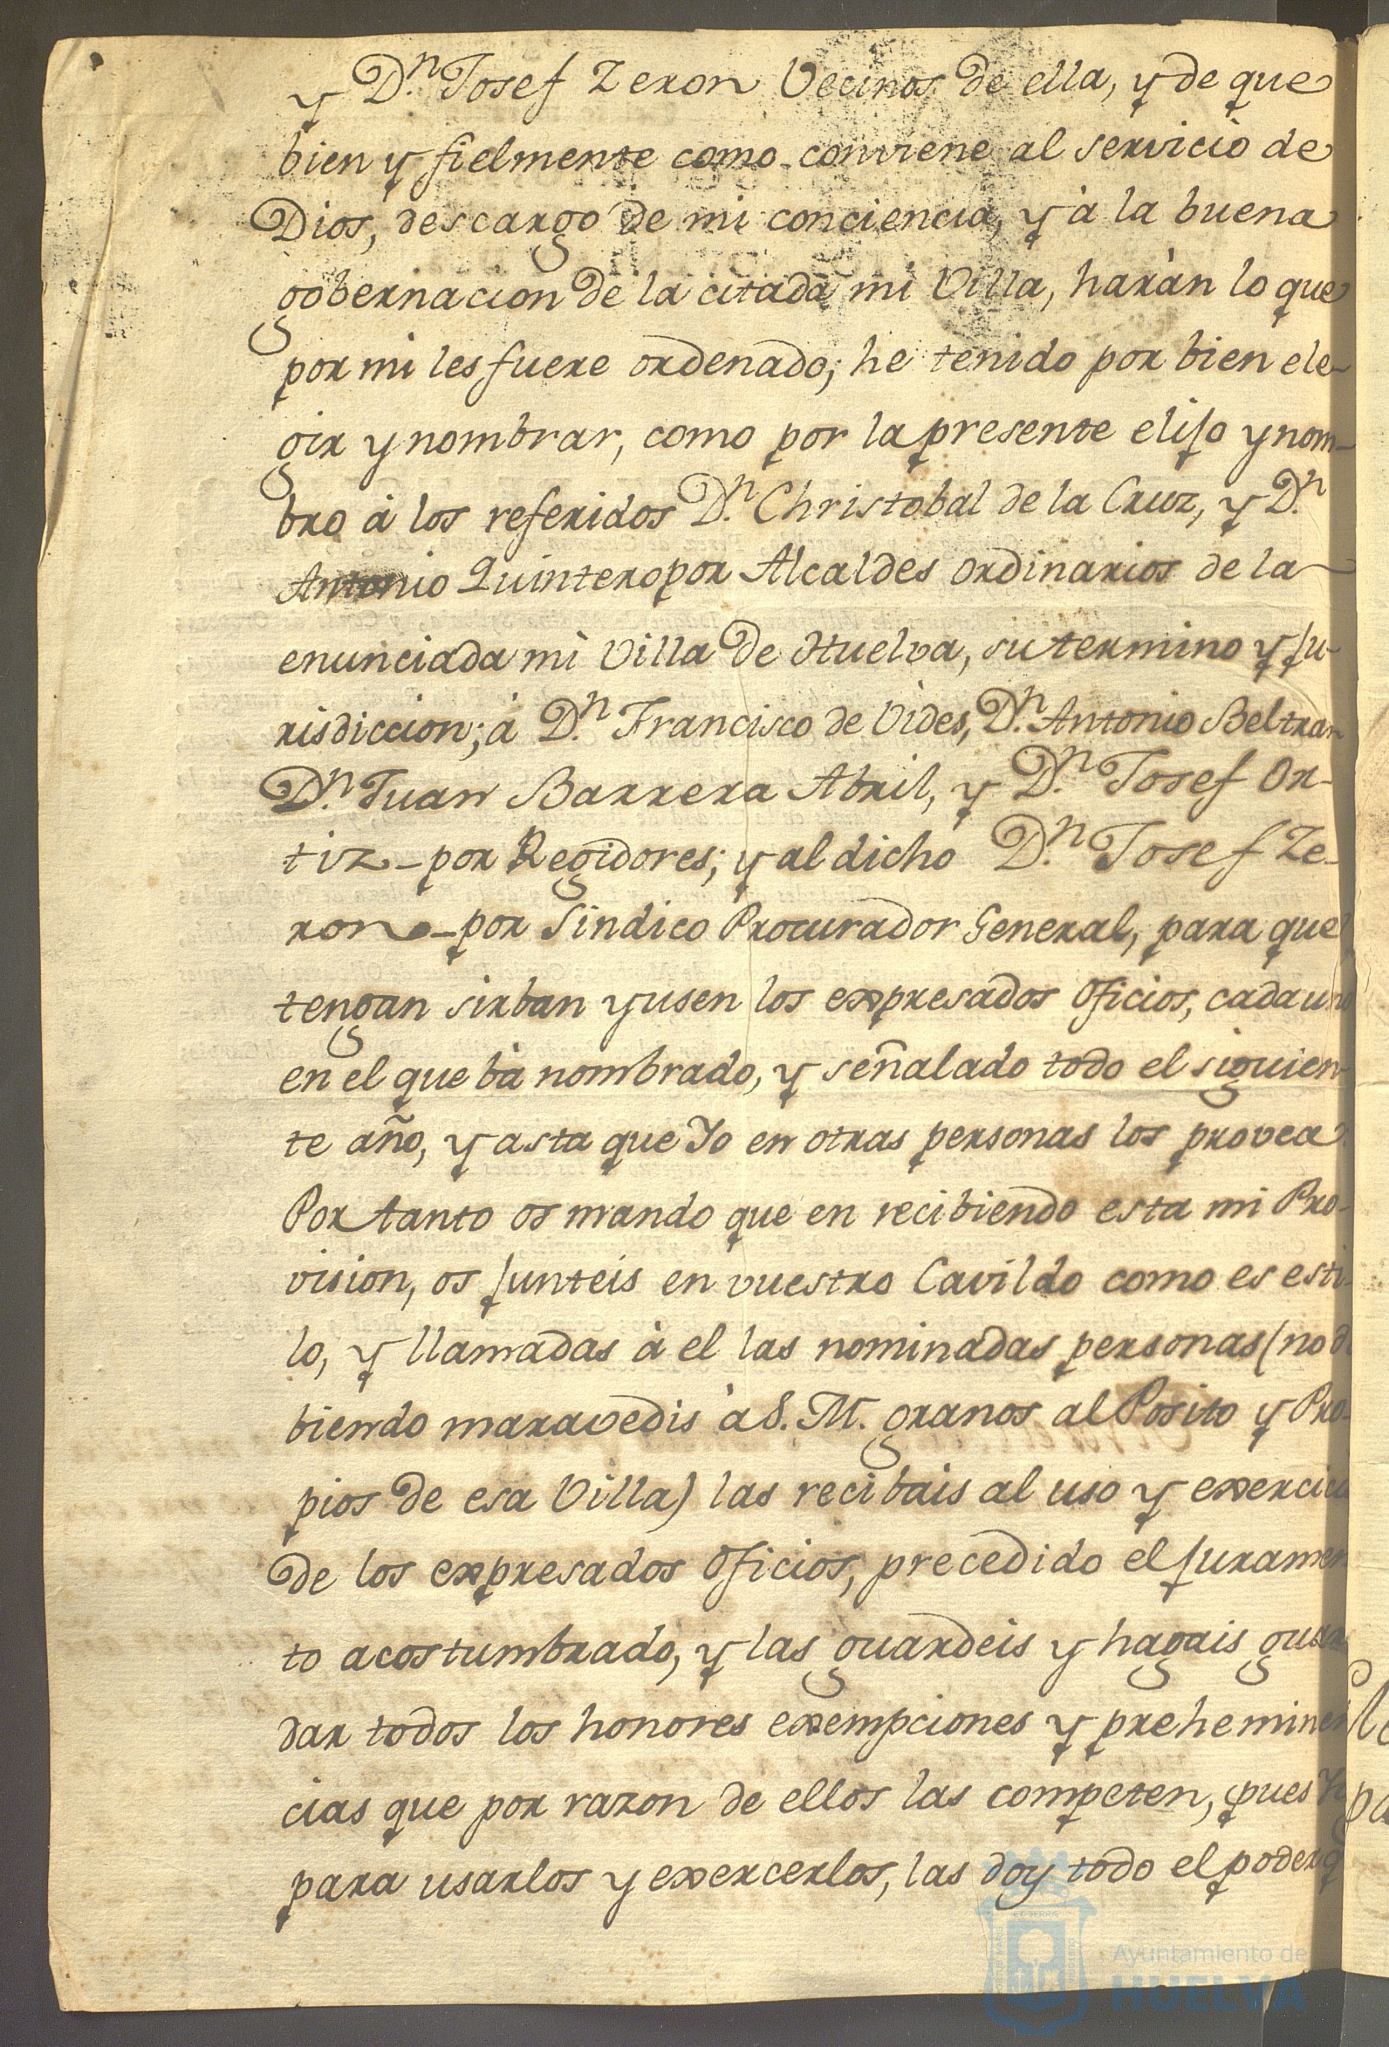 y D.n Josef Zeron Vecinos de ella, y de que
bien y fielmente como conviene al servicio de
Dios, descargo de mi conciencia, y à la buena
gobernacion de la citada mi Villa, haràn lo que
por mi les fuere ordenado; he tenido por bien ele-
gir y nombrar, como por la presente elijo y nom-
bro à los referidos D.n Christobal de la Cruz, y D.n
Antonio Quintero por Alcaldes ordinarios de la
enunciada mi Villa de Huelva, su termino y ju-
risdiccion; à D.n Francisco de Vides, D.n Antonio Beltran
D.n Juan Barrera Abril, y D.n Josef Or-
tiz - por Regidores; y al dicho D.n Josef Ze-
ron - por Sindico Procurador General, para que
tengan sirban y usen los expresados oficios, cada uno
en el que bà nombrado, y señalado todo el siguien-
te año, y asta que Yo en otras personas los provea
Por tanto os mando que en recibiendo esta mi Pro-
vision, os junteis en vuestro Cavildo como es esti-
lo, y llamadas à el las nominadas personas (no de
biendo maravedis à S. M. granos al Posito y Pro-
pios de esa Villa) las recibais al uso y exercicio
de los expresados oficios, precedido el juramen
to acostumbrado, y las guardeis y hagais guar
dar todos los honores exempciones y preheminen
cias que por razon de ellos las competen, pues Yo
para usarlos y exercerlos, las doy todo el poder q
Ayuntamiento de
HUELVA